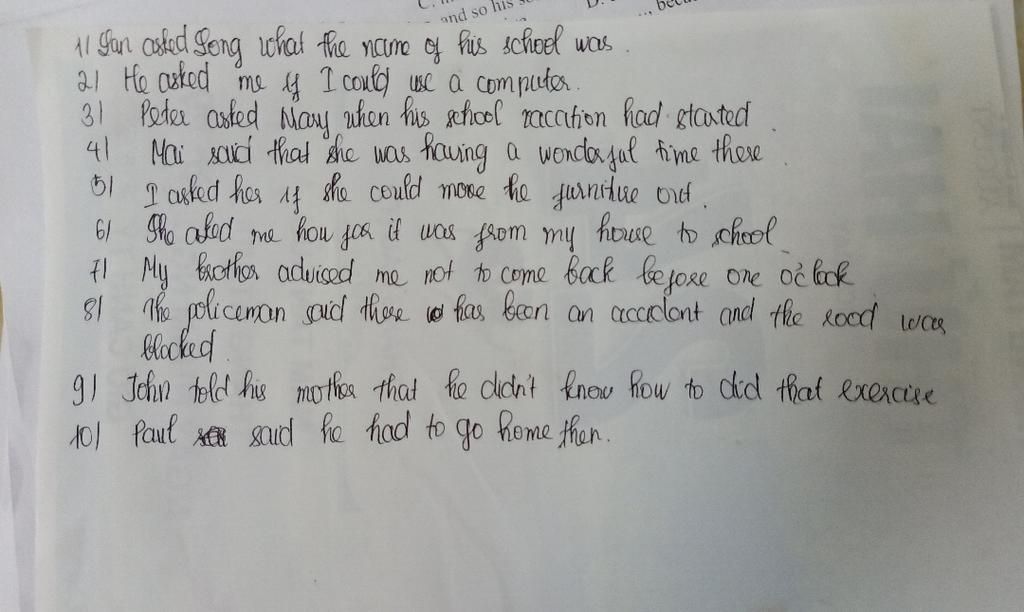 and so his
1) Lan asked Long what the name of his school was.
2) He asked me if I could use a computer.
3) Peter asked Mary when his school vaccation had started.
4) Mai said that she was having a wonderful time there.
5) I asked her if she could move the furnituse out.
6) She asked me how far it was from my house to school.
7) My brother adviced me not to come back before one o'clock
8) The policeman said there has been an accident and the road was
blocked.
9) John told his mother that he didn't know how to did that exercise
10) Paul said he had to go home then.